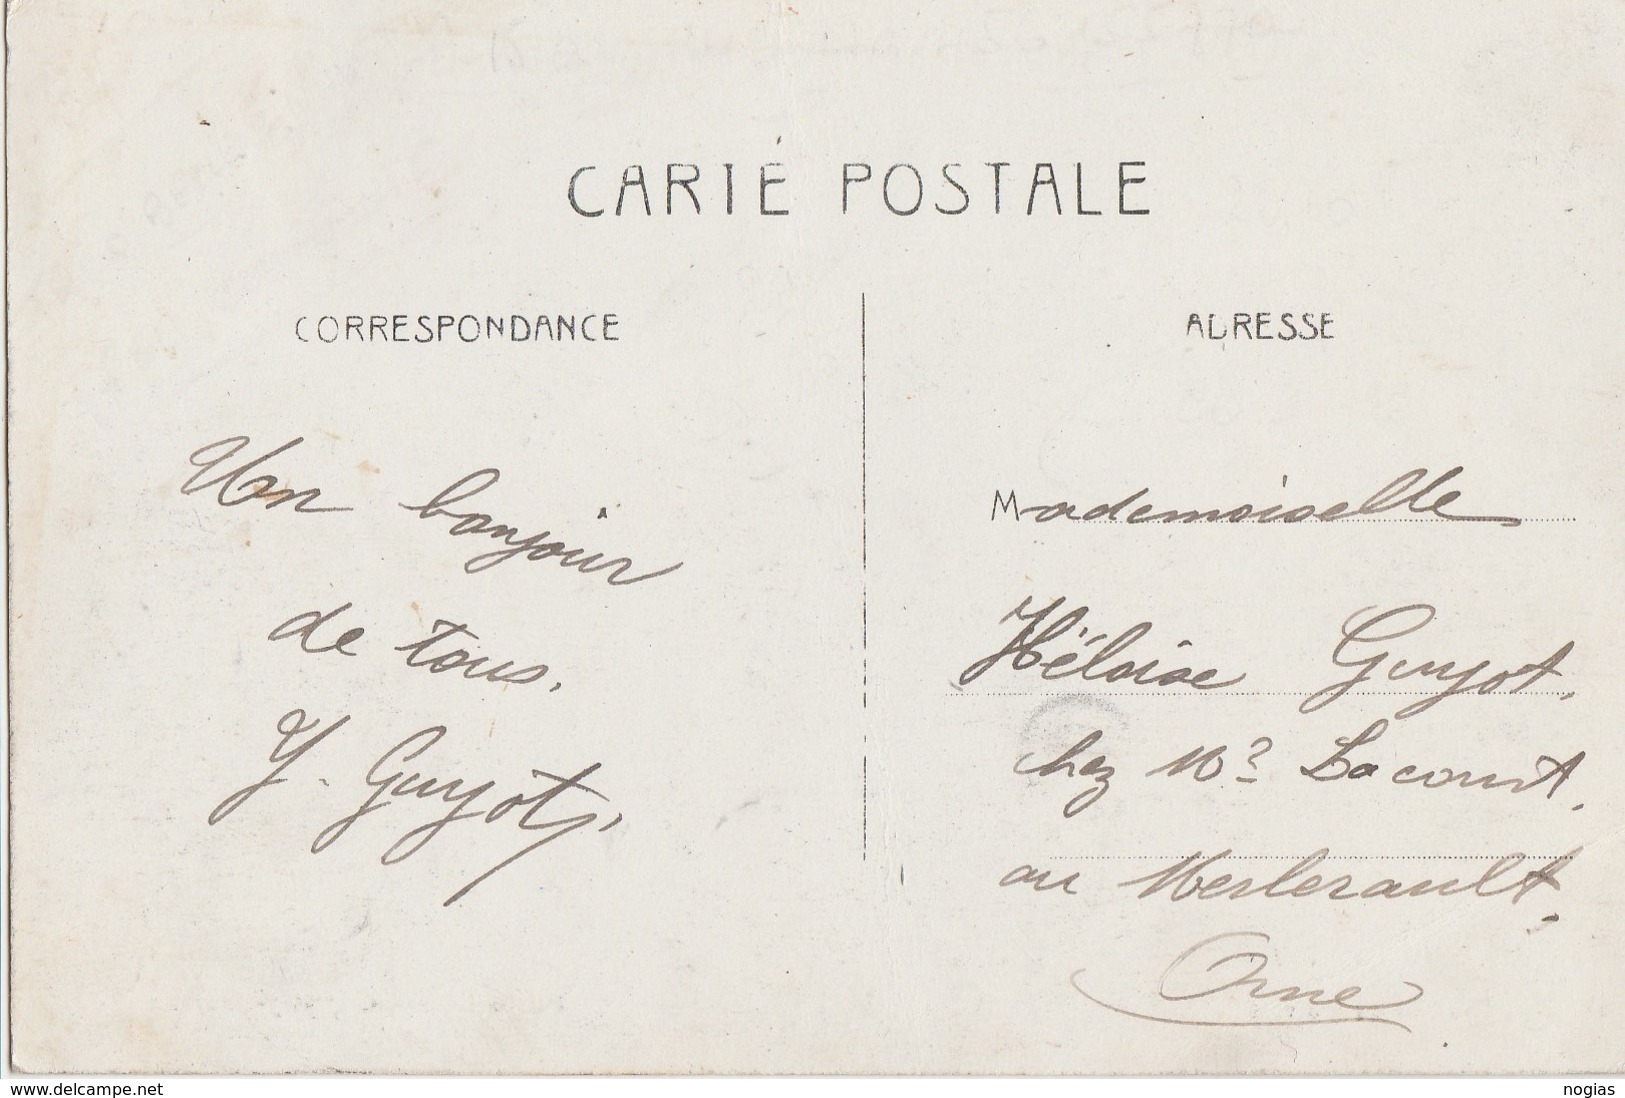 CARTE POSTALE
CORRESPONDANCE
Un bonjour
de tous.
Y. Guyot,
ADRESSE
Mademoiselle
Héloise Guyot,
chez Mr Lacourt,
au Merlerault,
Orne
www.delcampe.net
nogias